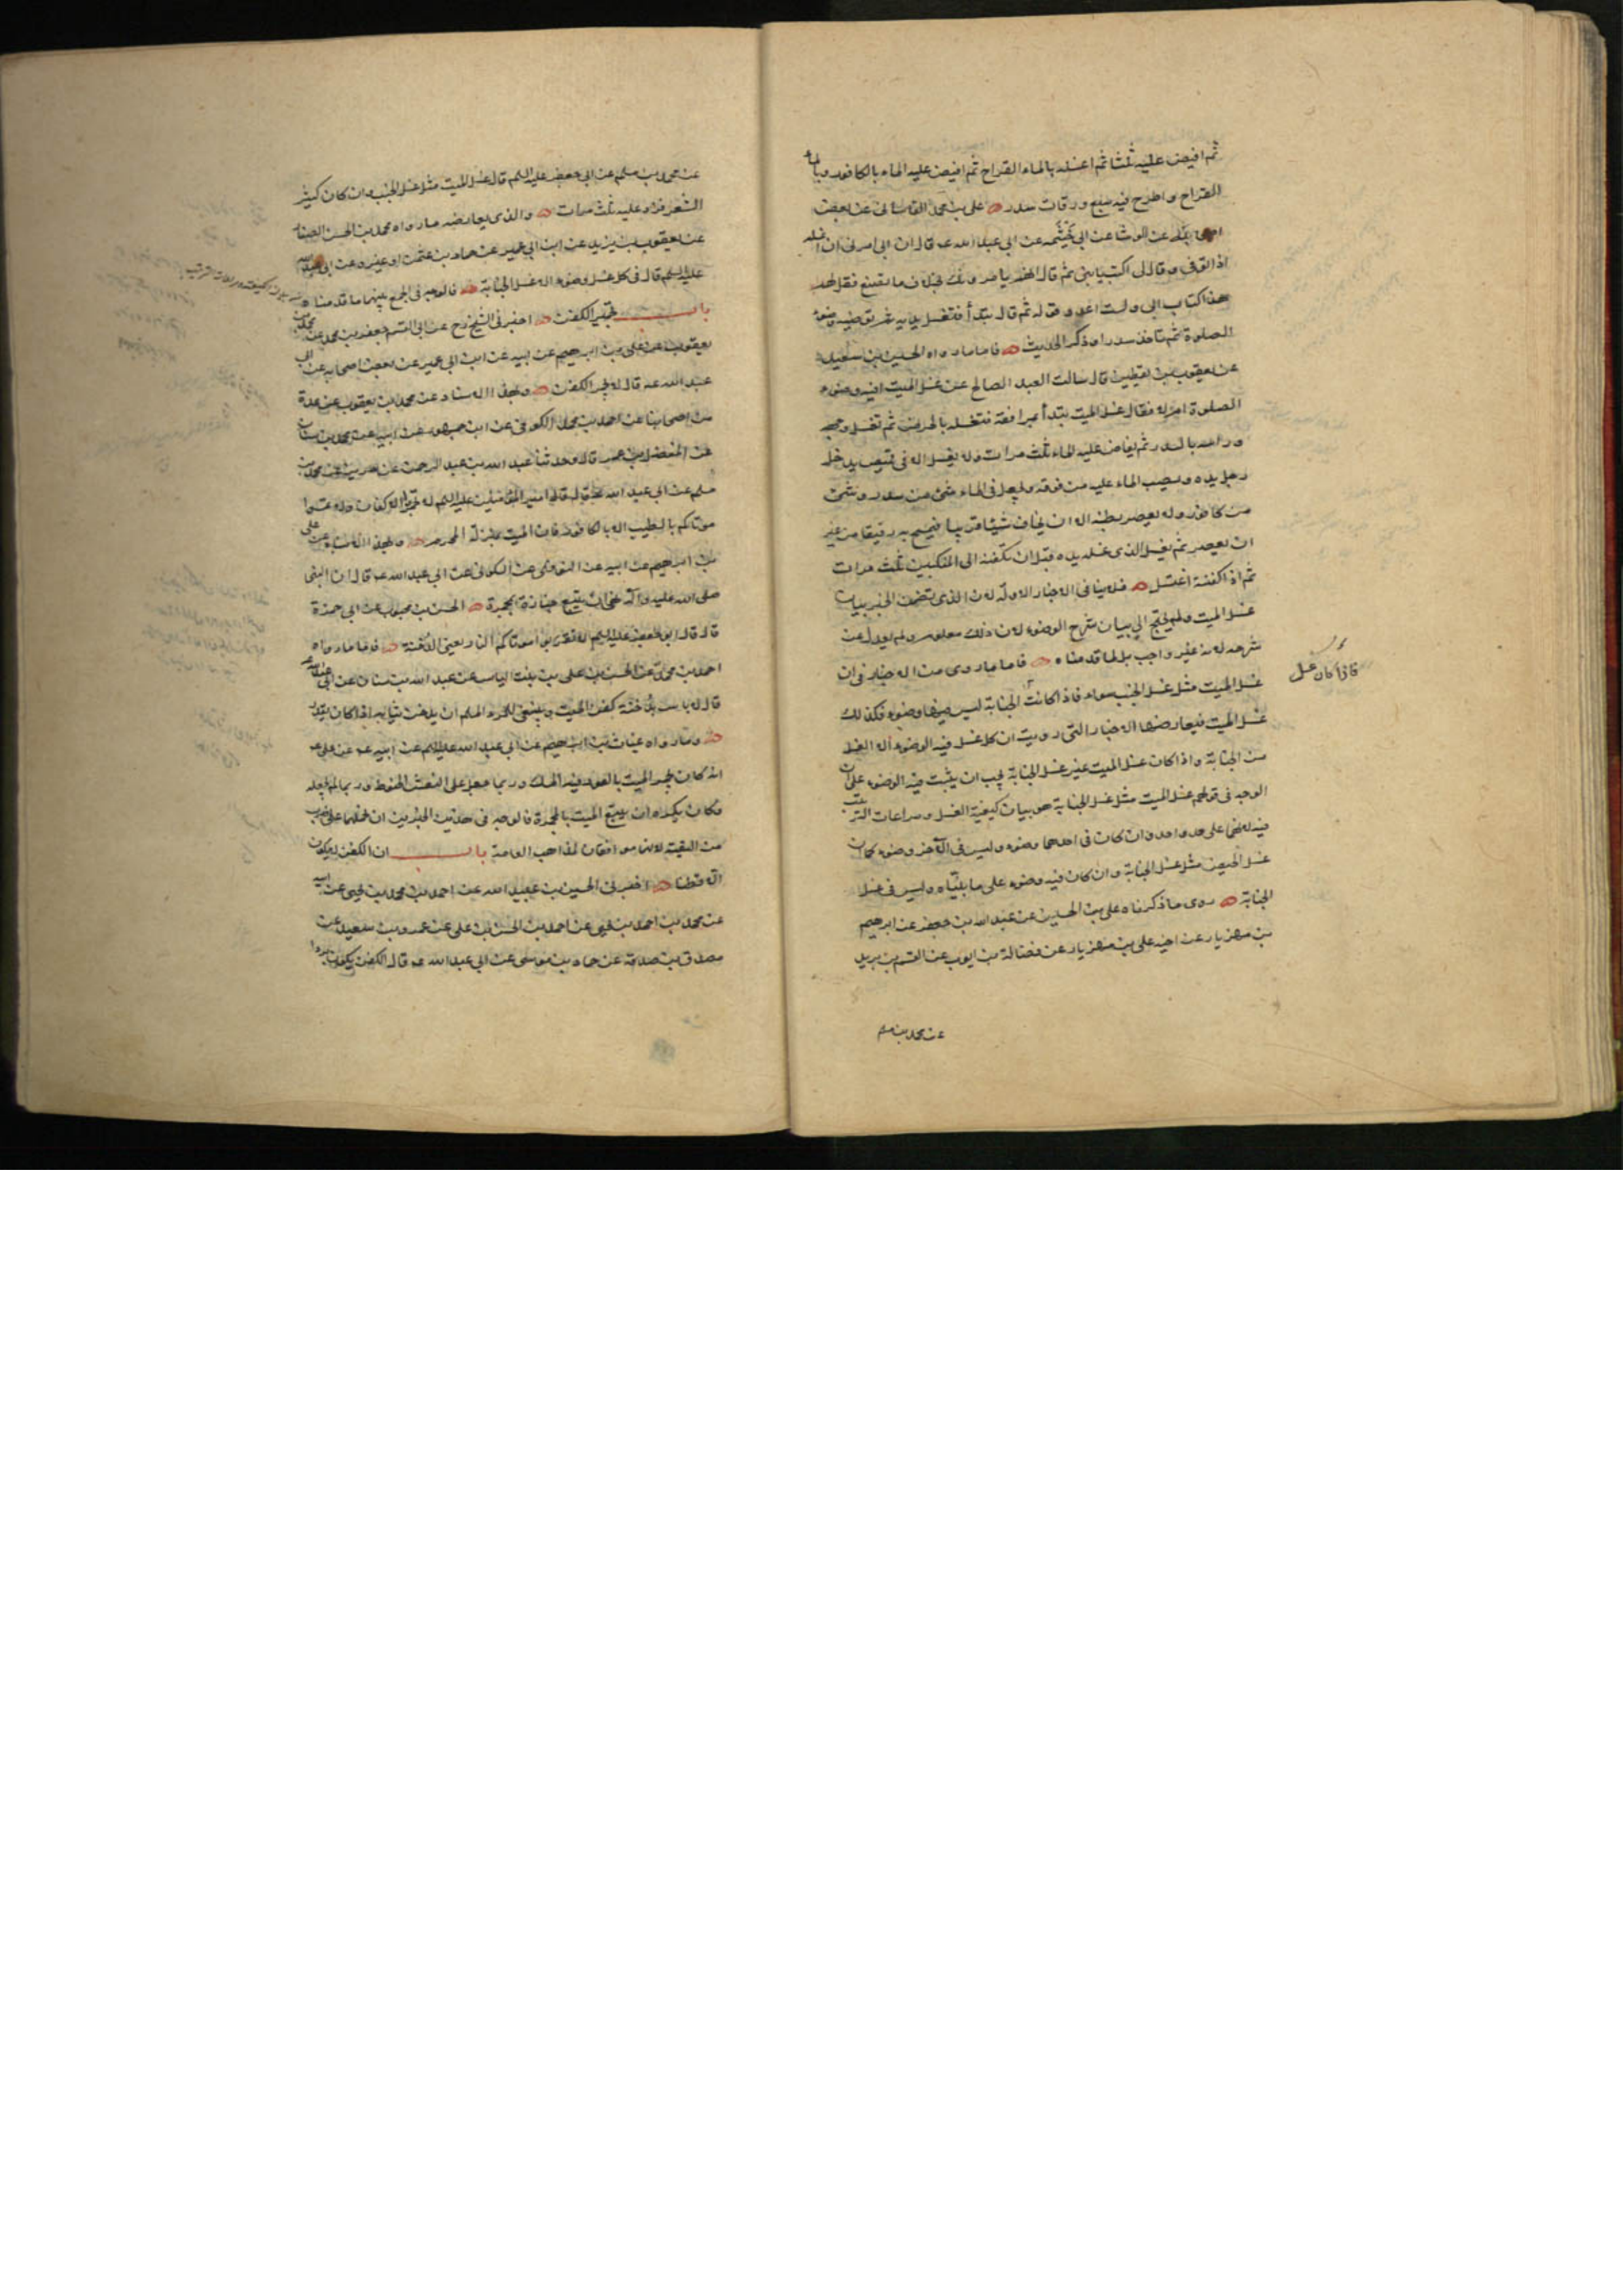 ثم افيض عليه ثلثا ثم اغسله بالماء القراح ثم افيض عليه الماء بالكافور وبالماء
القراح واطرح فيه سبع ورقات سدر علي بن محمد القاساني عن بعض
عن الوشا عن ابي خيثمه عن ابي عبد الله عه قال ان ابي امرني ان اغسله
اذا توفي وقال لي اكتب يا بني ثم قال انهم يامرونك بخلاف ما تصنع فقل لهم
هذا كتاب ابي ولست اعدو قوله ثم قال تبتدأ فتغسل يديه ثم توضيه وضوء
الصلوة ثم تاخذ سدرا وذكر الحديث فاما ما رواه الحسين بن سعيد
عن يعقوب بن يقطين قال سالت العبد الصالح عن غسل الميت افيه وضوء
الصلوة ام لا فقال غسل الميت تبتدأ بمرافقه فتغسله بالحرض ثم تغسل وجهه
وراسه بالسدر ثم يفاض عليه الماء ثلث مرات ولا يغسل الا في قميص يدخل
رجل يده ويصب الماء عليه من فوقه ويجعل في الماء شئ من سدر وشئ
من كافور ولا يعصر بطنه الا ان يخاف شيئا قريبا فيمسح به رفيقا من غير
ان يعصر ثم يغسل الذي غسله يده قبل ان يكفنه الى المنكبين ثلث مرات
ثم اذا كفنه اغتسل فلا ينافي الاخبار الاولة لان الذي تضمن الخبر بيان
غسل الميت ولم يحتج الى بيان شرح الوضوء لان ذلك معلوم ولم يعدل عن
شرحه لانه غير واجب بل لما قدمناه فاما ما روى من الاخبار في ان
غسل الميت مثل غسل الجنب سواء فاذا كانت الجنابة ليس فيها وضوء فكذلك
غسل الميت فيعارضها الاخبار التي رويت ان كل غسل فيه الوضوء الا الغسل
من الجنابة واذا كان غسل الميت غير غسل الجنابة يجب ان يثبت فيه الوضوء على ان
الوجه في قولهم غسل الميت مثل غسل الجنابة هو بيان كيفية الغسل ومراعات الترتيب
فيه على حد واحد وان كان في احدهما وضوء وليس في الآخر وضوء كما ان
غسل الحيض مثل غسل الجنابة وان كان فيه وضوء على ما بيناه وليس في غسل
الجنابة روى ما ذكرناه علي بن الحسين عن عبد الله بن جعفر عن ابرهيم
بن مهزيار عن اخيه علي بن مهزيار عن فضالة بن ايوب عن القسم بن بريد
عن محمد بن مسلم
فاذا كان غسل
عن محمد بن مسلم عن ابي جعفر عليه السلم قال غسل الميت مثل غسل الجنب وان كان كثير
الشعر فزد عليه ثلث مرات والذي يعارضه ما رواه محمد بن الحسن الصفار
عن يعقوب بن يزيد عن ابن ابي عمير عن حماد بن عثمان او غيره عن ابي عبد الله
عليه السلم قال في كل غسل وضوء الا غسل الجنابة فالوجه في الجمع بينهما ما قدمناه
كيفيته ومراعات الترتيب
باب تجمير الكفن اخبرني الشيخ رح عن ابي القسم جعفر بن محمد عن محمد بن
يعقوب عن علي بن ابرهيم عن ابيه عن ابن ابي عمير عن بعض اصحابه عن ابي
عبد الله عه قال لا يجمر الكفن وبهذا الاسناد عن محمد بن يعقوب عن عدة
من اصحابنا عن احمد بن محمد الكوفي عن ابن جمهور عن ابيه عن محمد بن سنان
عن المفضل بن عمر قال وحدثنا عبد الله بن عبد الرحمن عن حريز عن محمد بن
مسلم عن ابي عبد الله عه قال قال امير المؤمنين عليه السلم لا تجمروا الاكفان ولا تمسوا
موتاكم بالطيب الا بالكافور فان الميت بمنزلة المحرم وبهذا الاسناد عن علي
بن ابرهيم عن ابيه عن النوفلي عن السكوني عن ابي عبد الله عه قال ان النبي
صلى الله عليه وآله نهى ان يتبع جنازة بمجمرة الحسن بن محبوب عن ابي حمزة
قال قال ابو جعفر عليه السلم لا تقربوا موتاكم النار يعني الدخنة فاما ما رواه
احمد بن محمد عن الحسن بن علي بن بنت الياس عن عبد الله بن سنان عن ابي عبد الله عه
قال لا باس بدخنة كفن الميت وينبغي للمرء المسلم ان يدخن ثيابه اذا كان يقدر
وما رواه غياث بن ابرهيم عن ابي عبد الله عليه السلم عن ابيه عه عن علي عه
انه كان يجمر الميت بالعود فيه المسك وربما جعل على النعش الحنوط وربما لم يجعله
وكان يكره ان يتبع الميت بالمجمرة فالوجه في هذين الخبرين ان نحملهما على ضرب
من التقية لانهما موافقان لمذاهب العامة باب ان الكفن لا يكون
الا قطنا اخبرني الحسين بن عبيد الله عن احمد بن محمد بن يحيى عن ابيه
عن محمد بن احمد بن يحيى عن احمد بن الحسن بن علي عن عمرو بن سعيد عن
مصدق بن صدقة عن عمار بن موسى عن ابي عبد الله عه قال الكفن يكون بردا